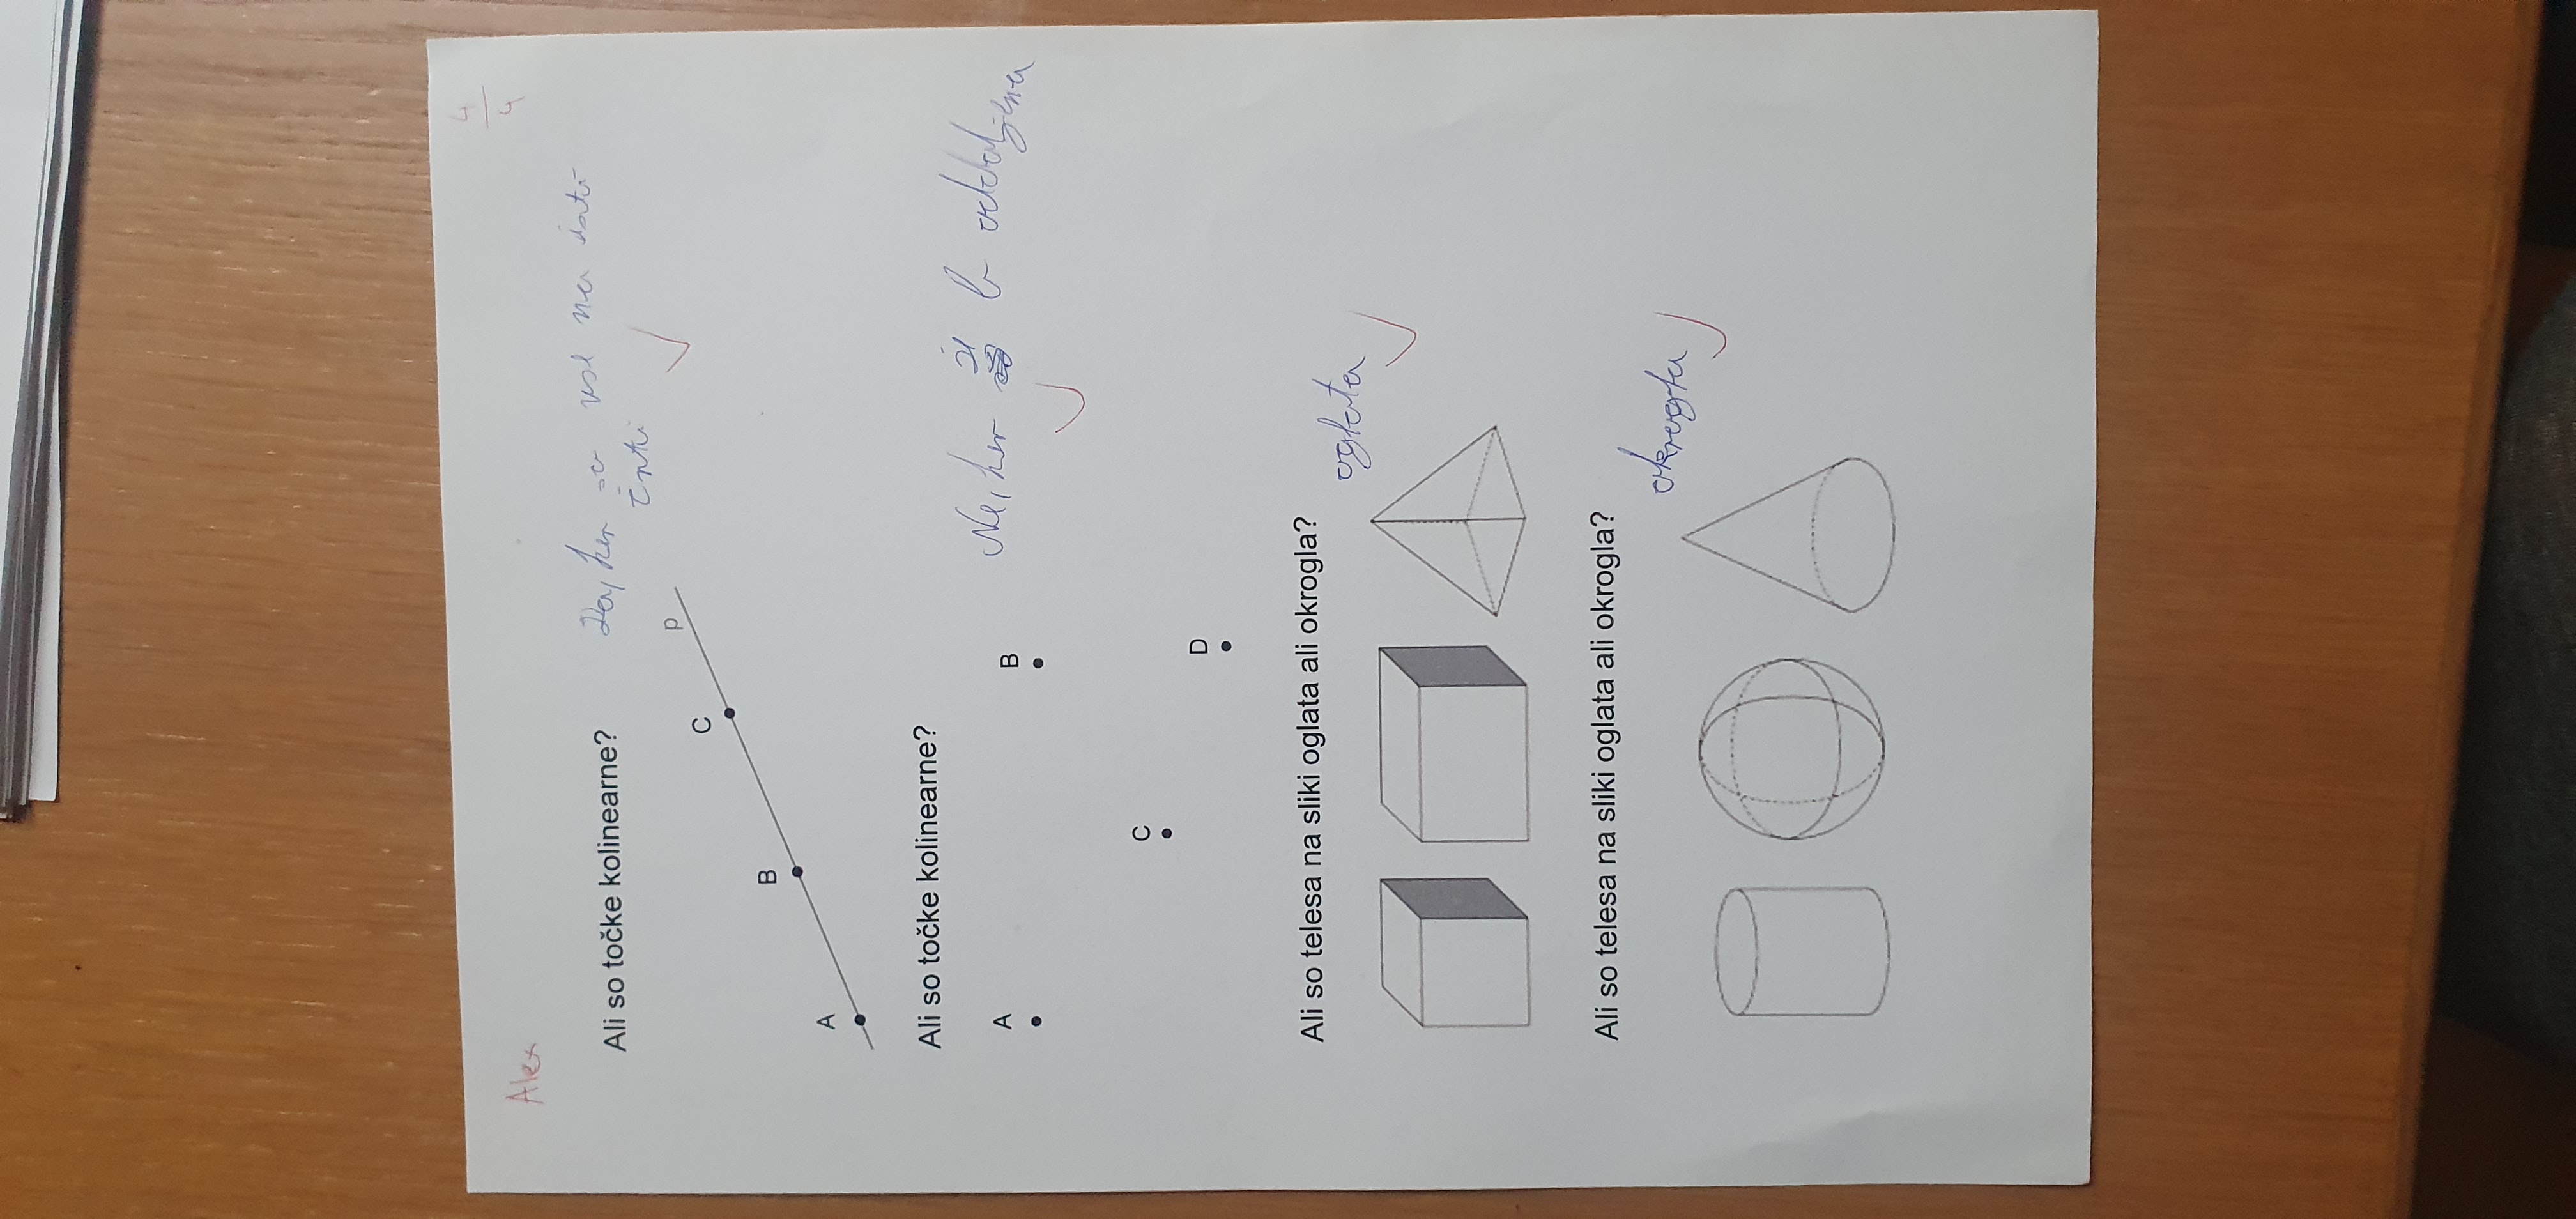 4
4
Alex
Ali so točke kolinearne?
Da, ker so vse na isti
črti
p
C
B
A
Ali so točke kolinearne?
Ne, ker je b oddaljena
A
B
C
D
Ali so telesa na sliki oglata ali okrogla?
oglata
Ali so telesa na sliki oglata ali okrogla?
okrogla